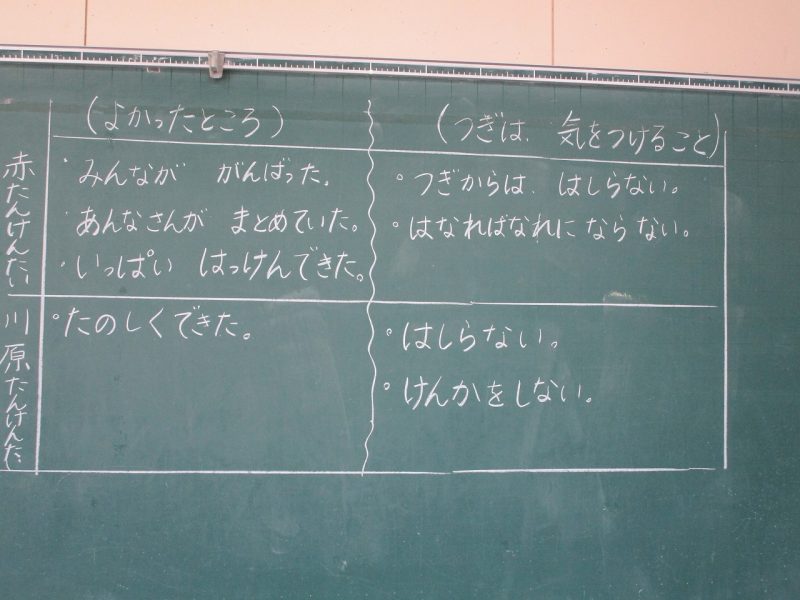 (よかったところ)
(つぎは、気をつけること)
赤たんけんたい
・みんなが がんばった。
・あんなさんが まとめていた。
・いっぱい はっけんできた。
・つぎからは、はしらない。
・はなればなれに ならない。
川原たんけんたい
・たのしくできた。
・はしらない。
・けんかをしない。